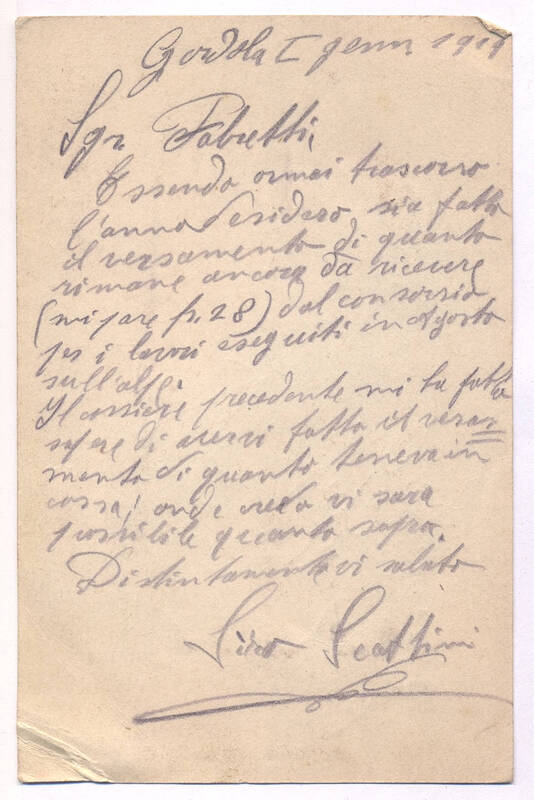 Gordola I genn 1919
Sgr Fabretti,
Essendo ormai trascorso
l'anno desidero sia fatto
il versamento di quanto
rimane ancora da ricevere
(mi pare fr. 28) dal consorzio
per i lavori eseguiti in Agosto
sull'alpe.
Il cassiere precedente mi ha fatto
sapere di avervi fatto il versa=
mento di quanto teneva in
cassa, onde credo vi sarà
possibile quanto sopra.
Distintamente vi saluto
Scattini